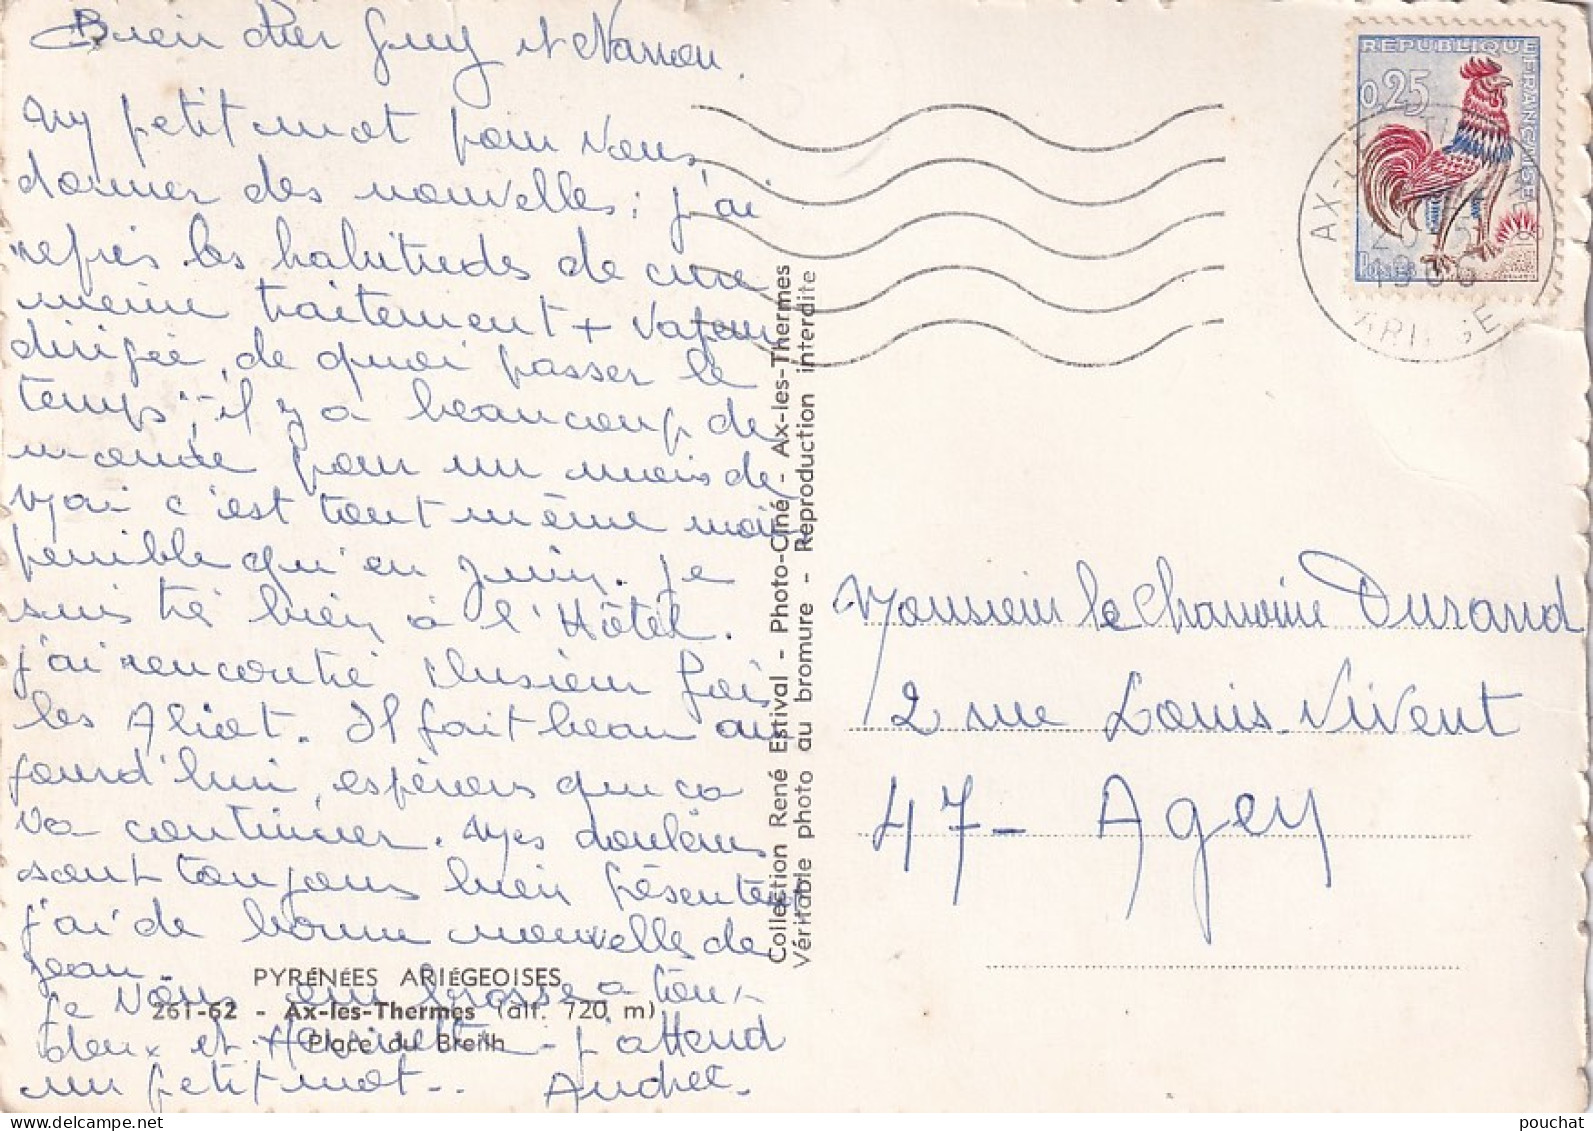 Bien cher Guy et Nanon.
Un petit mot pour vous
donner des nouvelles ; j'ai
repris les habitudes de cure
même traitement + vapeur
dirigée, de quoi passer le
temps ; il y a beaucoup de
monde pour un mois de
Mai c'est tout même moins
penible qu'en Juin. Je
suis tré bien à l'Hôtel.
j'ai rencontré plusieur fois
les Aliet. Il fait beau au
jourd'hui, espérons que ca
va continuer. Mes douleurs
sont toujours bien présentes
j'ai de bonne nouvelle de
Jean.
Je vous embrosse a tou-
deux et Henriette - J'attend
un petit mot.. Andrée.
PYRÉNÉES ARIÉGEOISES
261-62 - Ax-les-Thermes (alt. 720 m)
Place du Breilh
Collection René Estival - Photo-Ciné - Ax-les-Thermes
Véritable photo au bromure - Reproduction interdite
RÉPUBLIQUE FRANÇAISE
0,25
AX-LES-THERMES
1966
ARIEGE
Monsieur le Chanoine Durand
2 rue Louis Vivent
47 - Agen
pouchat